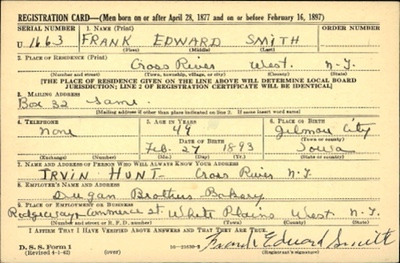 REGISTRATION CARD—(Men born on or after April 28, 1877 and on or before February 16, 1897)
SERIAL NUMBER 1. NAME (Print) ORDER NUMBER
U 1663 FRANK EDWARD SMITH
(First) (Middle) (Last)
2. PLACE OF RESIDENCE (Print)
Cross River West. N-Y.
(Number and street) (Town, township, village, or city) (County) (State)
[THE PLACE OF RESIDENCE GIVEN ON THE LINE ABOVE WILL DETERMINE LOCAL BOARD
JURISDICTION; LINE 2 OF REGISTRATION CERTIFICATE WILL BE IDENTICAL]
3. MAILING ADDRESS
Box 32 Same
(Mailing address if other than place indicated on line 2. If same insert word same)
4. TELEPHONE 5. AGE IN YEARS 6. PLACE OF BIRTH
None 49 Gilmore City
DATE OF BIRTH (Town or county)
Feb. 27 1893 Iowa
(Mo.) (Day) (Yr.) (State or country)
7. NAME AND ADDRESS OF PERSON WHO WILL ALWAYS KNOW YOUR ADDRESS
IRVIN HUNT Cross River N-Y.
8. EMPLOYER'S NAME AND ADDRESS
Dugan Brothers Bakery
9. PLACE OF EMPLOYMENT OR BUSINESS
Commerce St. White Plains West N-Y.
(Number and street or R. F. D. number) (Town) (County) (State)
I AFFIRM THAT I HAVE VERIFIED ABOVE ANSWERS AND THAT THEY ARE TRUE.
D. S. S. Form 1
(Revised 4-1-42) (over) Frank Edward Smith
(Registrant's signature)